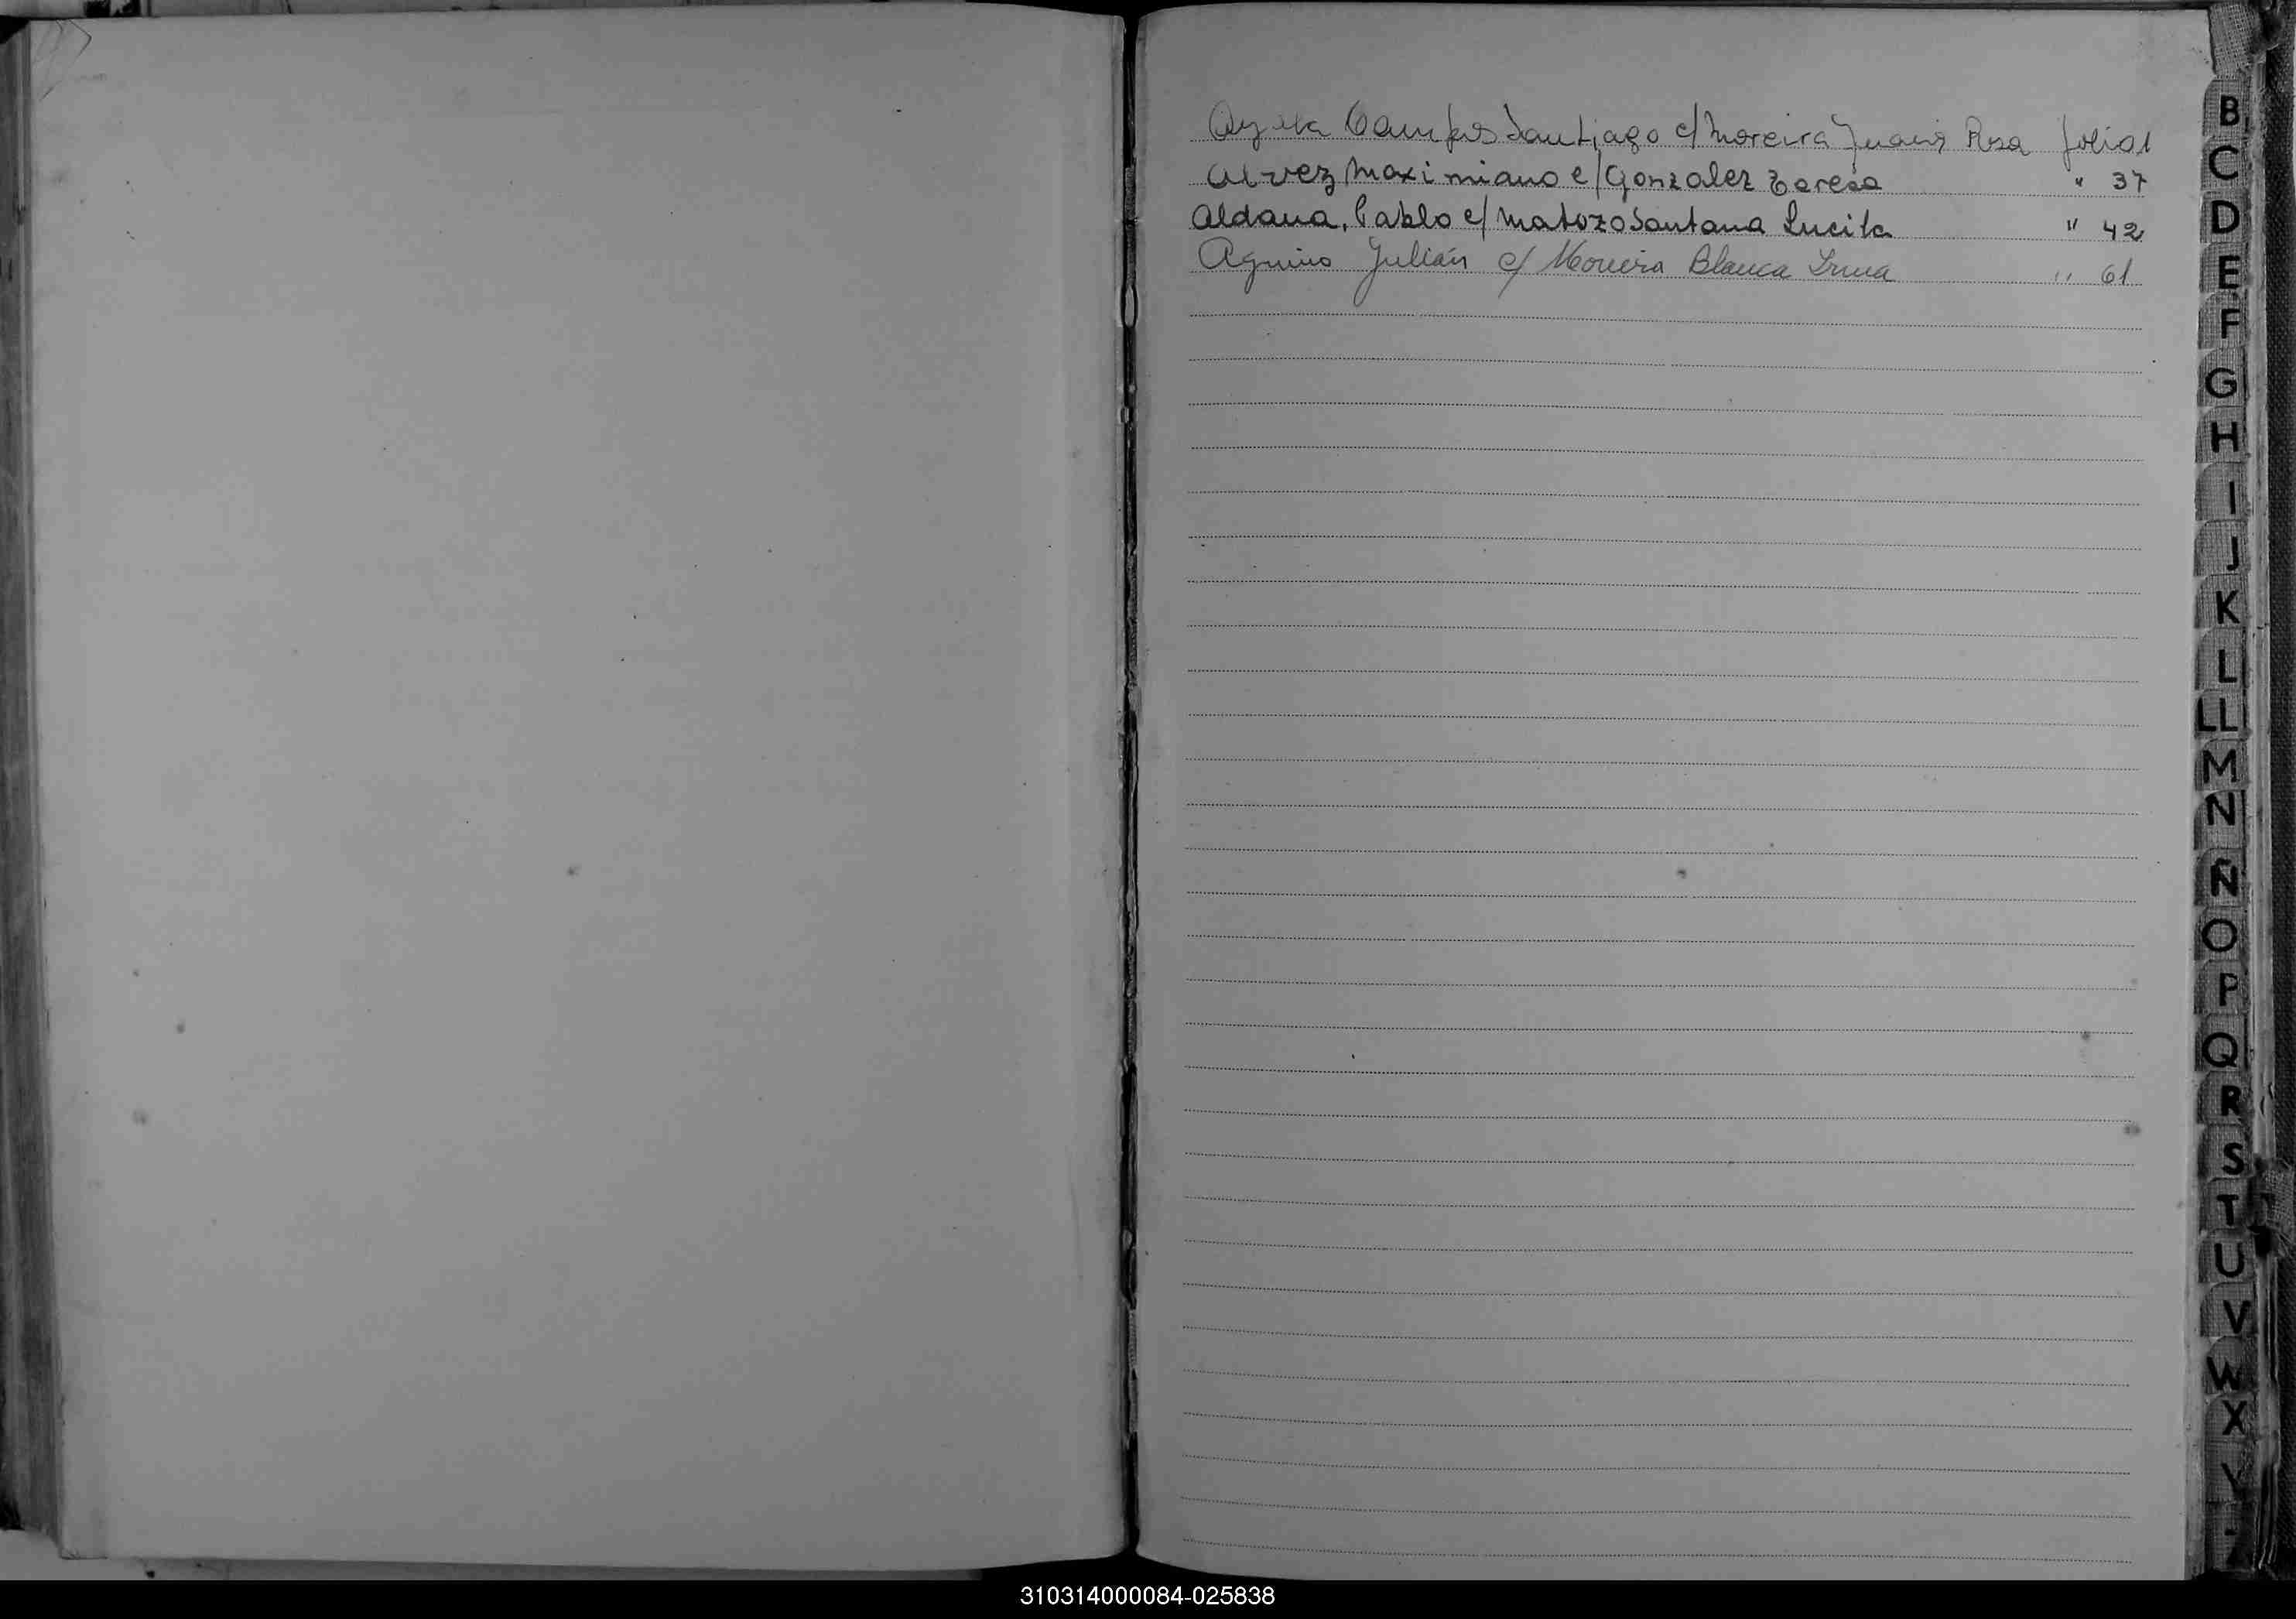 Ayala Campos Santiago c/ Moreira Juana Rosa folio 1
Alvez Maximiano c/ Gonzalez Teresa " 37
Aldana, Pablo c/ Matozo Santana Lucila " 42
Aquino Julián c/ Moreira Blanca Irma " 61
B
C
D
E
F
G
H
I
J
K
L
LL
M
N
Ñ
O
P
Q
R
S
T
U
V
W
X
Y
Z
310314000084-025838